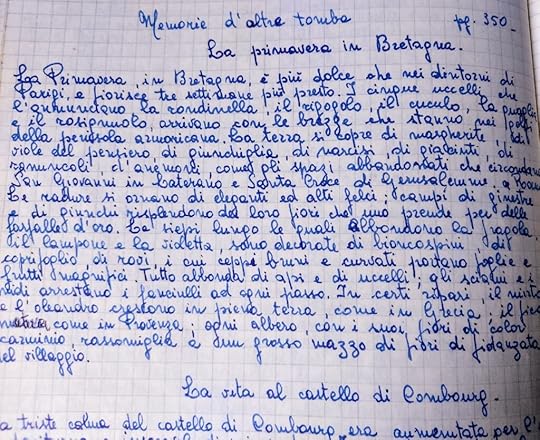 Memorie d'altre tomba pg. 350_
La primavera in Bretagna.
La Primavera, in Bretagna, è più dolce che nei dintorni di
Parigi, e fiorisce tre settimane più presto. I cinque uccelli che
l'annunciano la rondinella, il rigogolo, il cuculo, la quaglia
e il rosignuolo, arrivano con le brezze che stanno nei golfi
della penisola armoricana. La terra si copre di margherite, di
viole del pensiero, di giunchiglia, di narcisi, di giacinti, di
ranuncoli, d'anemoni, come gli spazi abbandonati che circondano
San Giovanni in Laterano e Santa Croce di Gerusalemme, a Roma
Le radure si ornano di eleganti ed alti felci; campi di ginestre
e di giunchi risplendono dei loro fiori che uno prende per delle
farfalle d'oro. Le siepi lungo le quali abbondono la fragola
il lampone e la violetta, sono decorate di biancospini di
caprifoglio di rovi, i cui ceppi bruni e curvati portano foglie e
frutti magnifici. Tutto abbonda di api e di uccelli, gli sciami e i
nidi arrestano i fanciulli ad ogni passo. In certi ripari, il mirto
e l'oleandro crescono in piena terra, come in Grecia, il fico
matura come in Provenza; ogni albero, con i suoi fiori di color
carminio, rassomiglia a un grosso mazzo di fiori di fidanzata
del villaggio.
La vita al castello di Combourg.
a triste calma del castello di Combourg era aumentata per l'